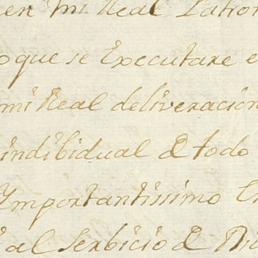 en mi Real
oque se Executare e
mi Real deliveracion
indibidual d todo
Ymportantissimo
al Serbicio d